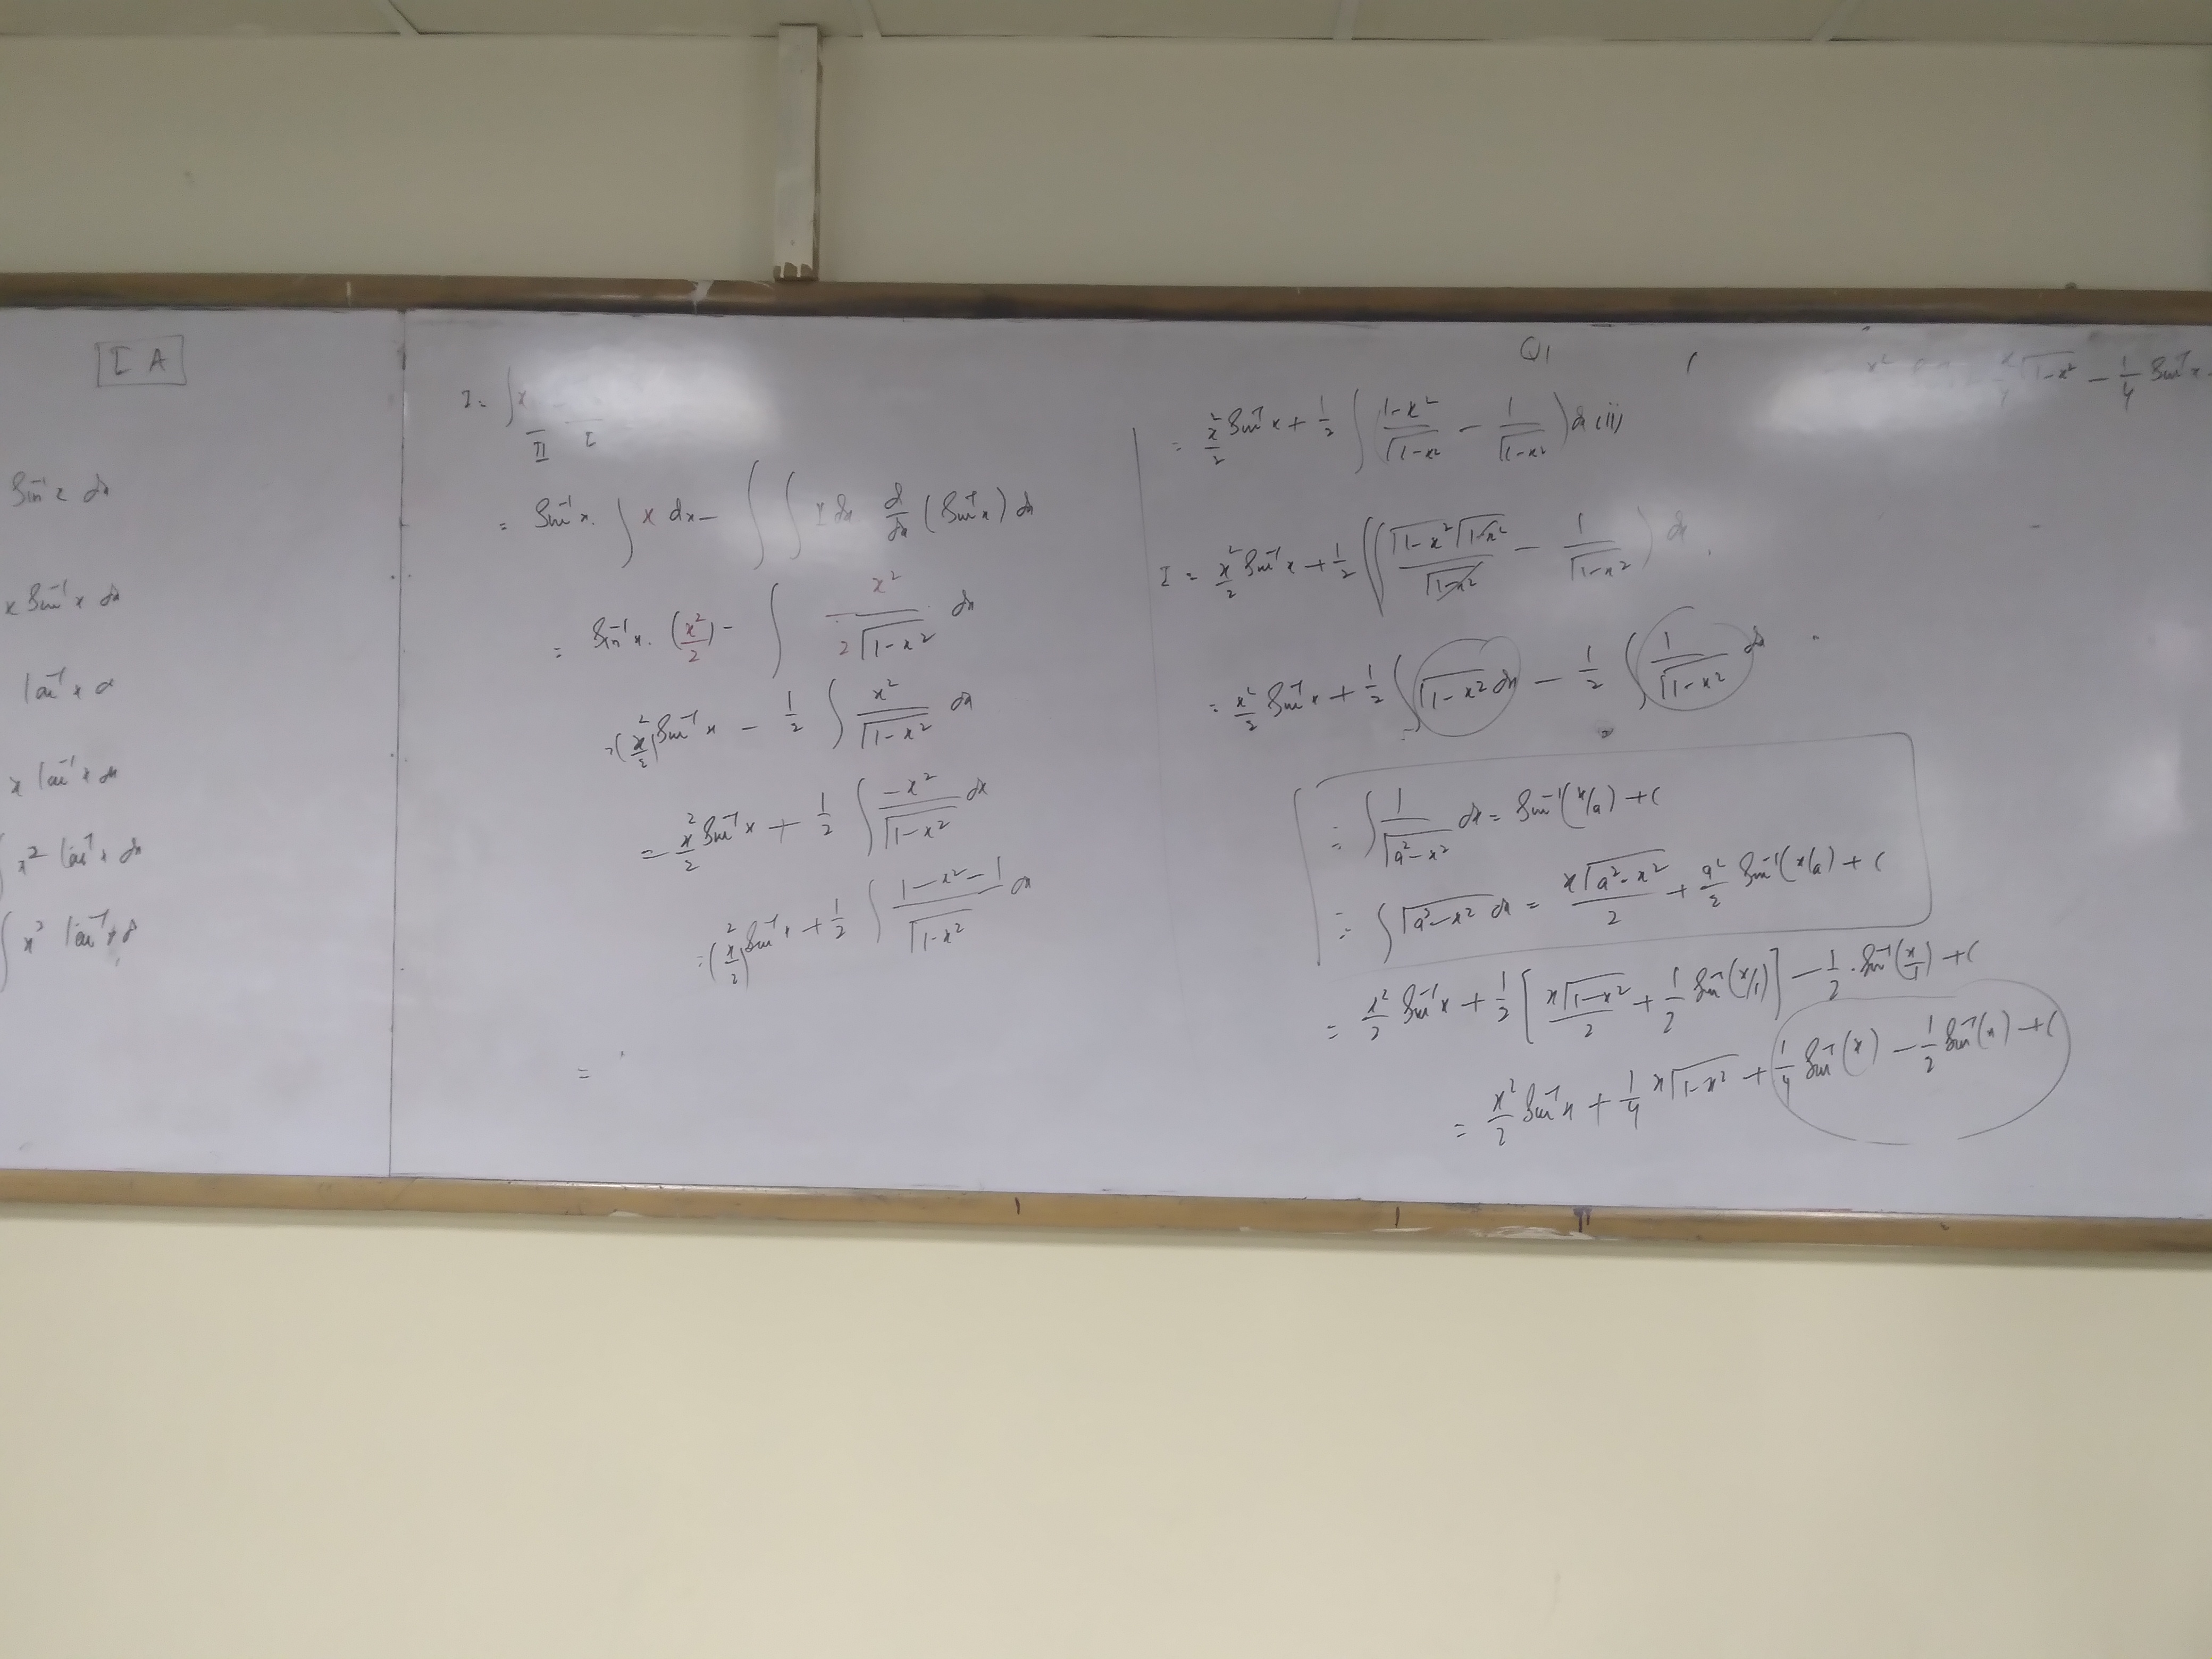 I A
Sin⁻¹x dx
x Sin⁻¹x dx
tan⁻¹x d
x tan⁻¹x dx
x² tan⁻¹x dx
∫ x² tan⁻¹x d
I = ∫ x
II I
= Sin⁻¹x. ∫ x dx − ∫ ∫ x dx d/dx (Sin⁻¹x) dx
= Sin⁻¹x. (x²/2) − ∫ x²/(2√(1−x²)) dx
= (x²/2) Sin⁻¹x − 1/2 ∫ x²/√(1−x²) dx
= x²/2 Sin⁻¹x + 1/2 ∫ −x²/√(1−x²) dx
= (x²/2) Sin⁻¹x + 1/2 ∫ (1−x²−1)/√(1−x²) dx
=
Q1
= x²/2 Sin⁻¹x + 1/2 ∫ ((1−x²)/√(1−x²) − 1/√(1−x²)) dx (ii)
I = x²/2 Sin⁻¹x + 1/2 ∫ (√(1−x²)√(1−x²)/√(1−x²) − 1/√(1−x²)) dx
= x²/2 Sin⁻¹x + 1/2 ∫ √(1−x²) dx − 1/2 ∫ 1/√(1−x²) dx
∵ ∫ 1/√(a²−x²) dx = Sin⁻¹(x/a) + C
∵ ∫ √(a²−x²) dx = x√(a²−x²)/2 + a²/2 Sin⁻¹(x/a) + C
= x²/2 Sin⁻¹x + 1/2 [x√(1−x²)/2 + 1/2 Sin⁻¹(x/1)] − 1/2 . Sin⁻¹(x/1) + C
= x²/2 Sin⁻¹x + 1/4 x√(1−x²) + 1/4 Sin⁻¹(x) − 1/2 Sin⁻¹(x) + C
x² √(1−x²) − 1/4 Sin⁻¹x